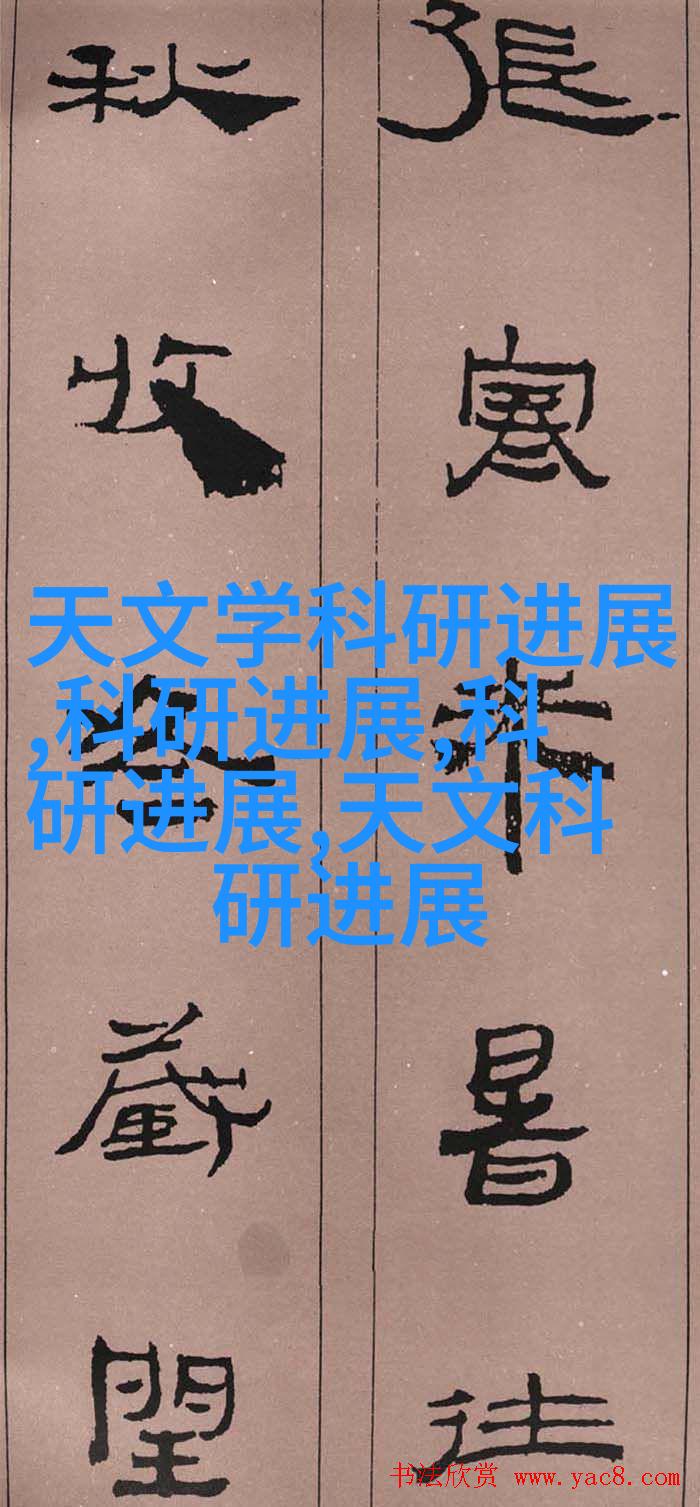 張寒來暑往
秋收冬藏閏
天文学科研进展
,科研进展,科
研进展,天文科
研进展
书法欣赏 www.yac8.com